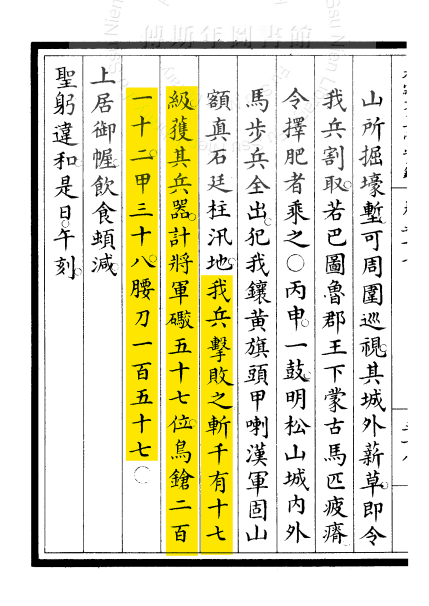 山所掘壕塹可周圍巡視其城外薪草即令
我兵割取若巴圖魯郡王下蒙古馬匹疲瘠
令擇肥者乘之○丙申一鼓明松山城內外
馬步兵全出犯我鑲黃旗頭甲喇漢軍固山
額真石廷柱汛地我兵擊敗之斬千有十七
級獲其兵器計將軍礮五十七位鳥鎗二百
一十二甲三十八腰刀一百五十七○
上居御幄飲食頓減
聖躬違和是日午刻
傅斯年圖書館